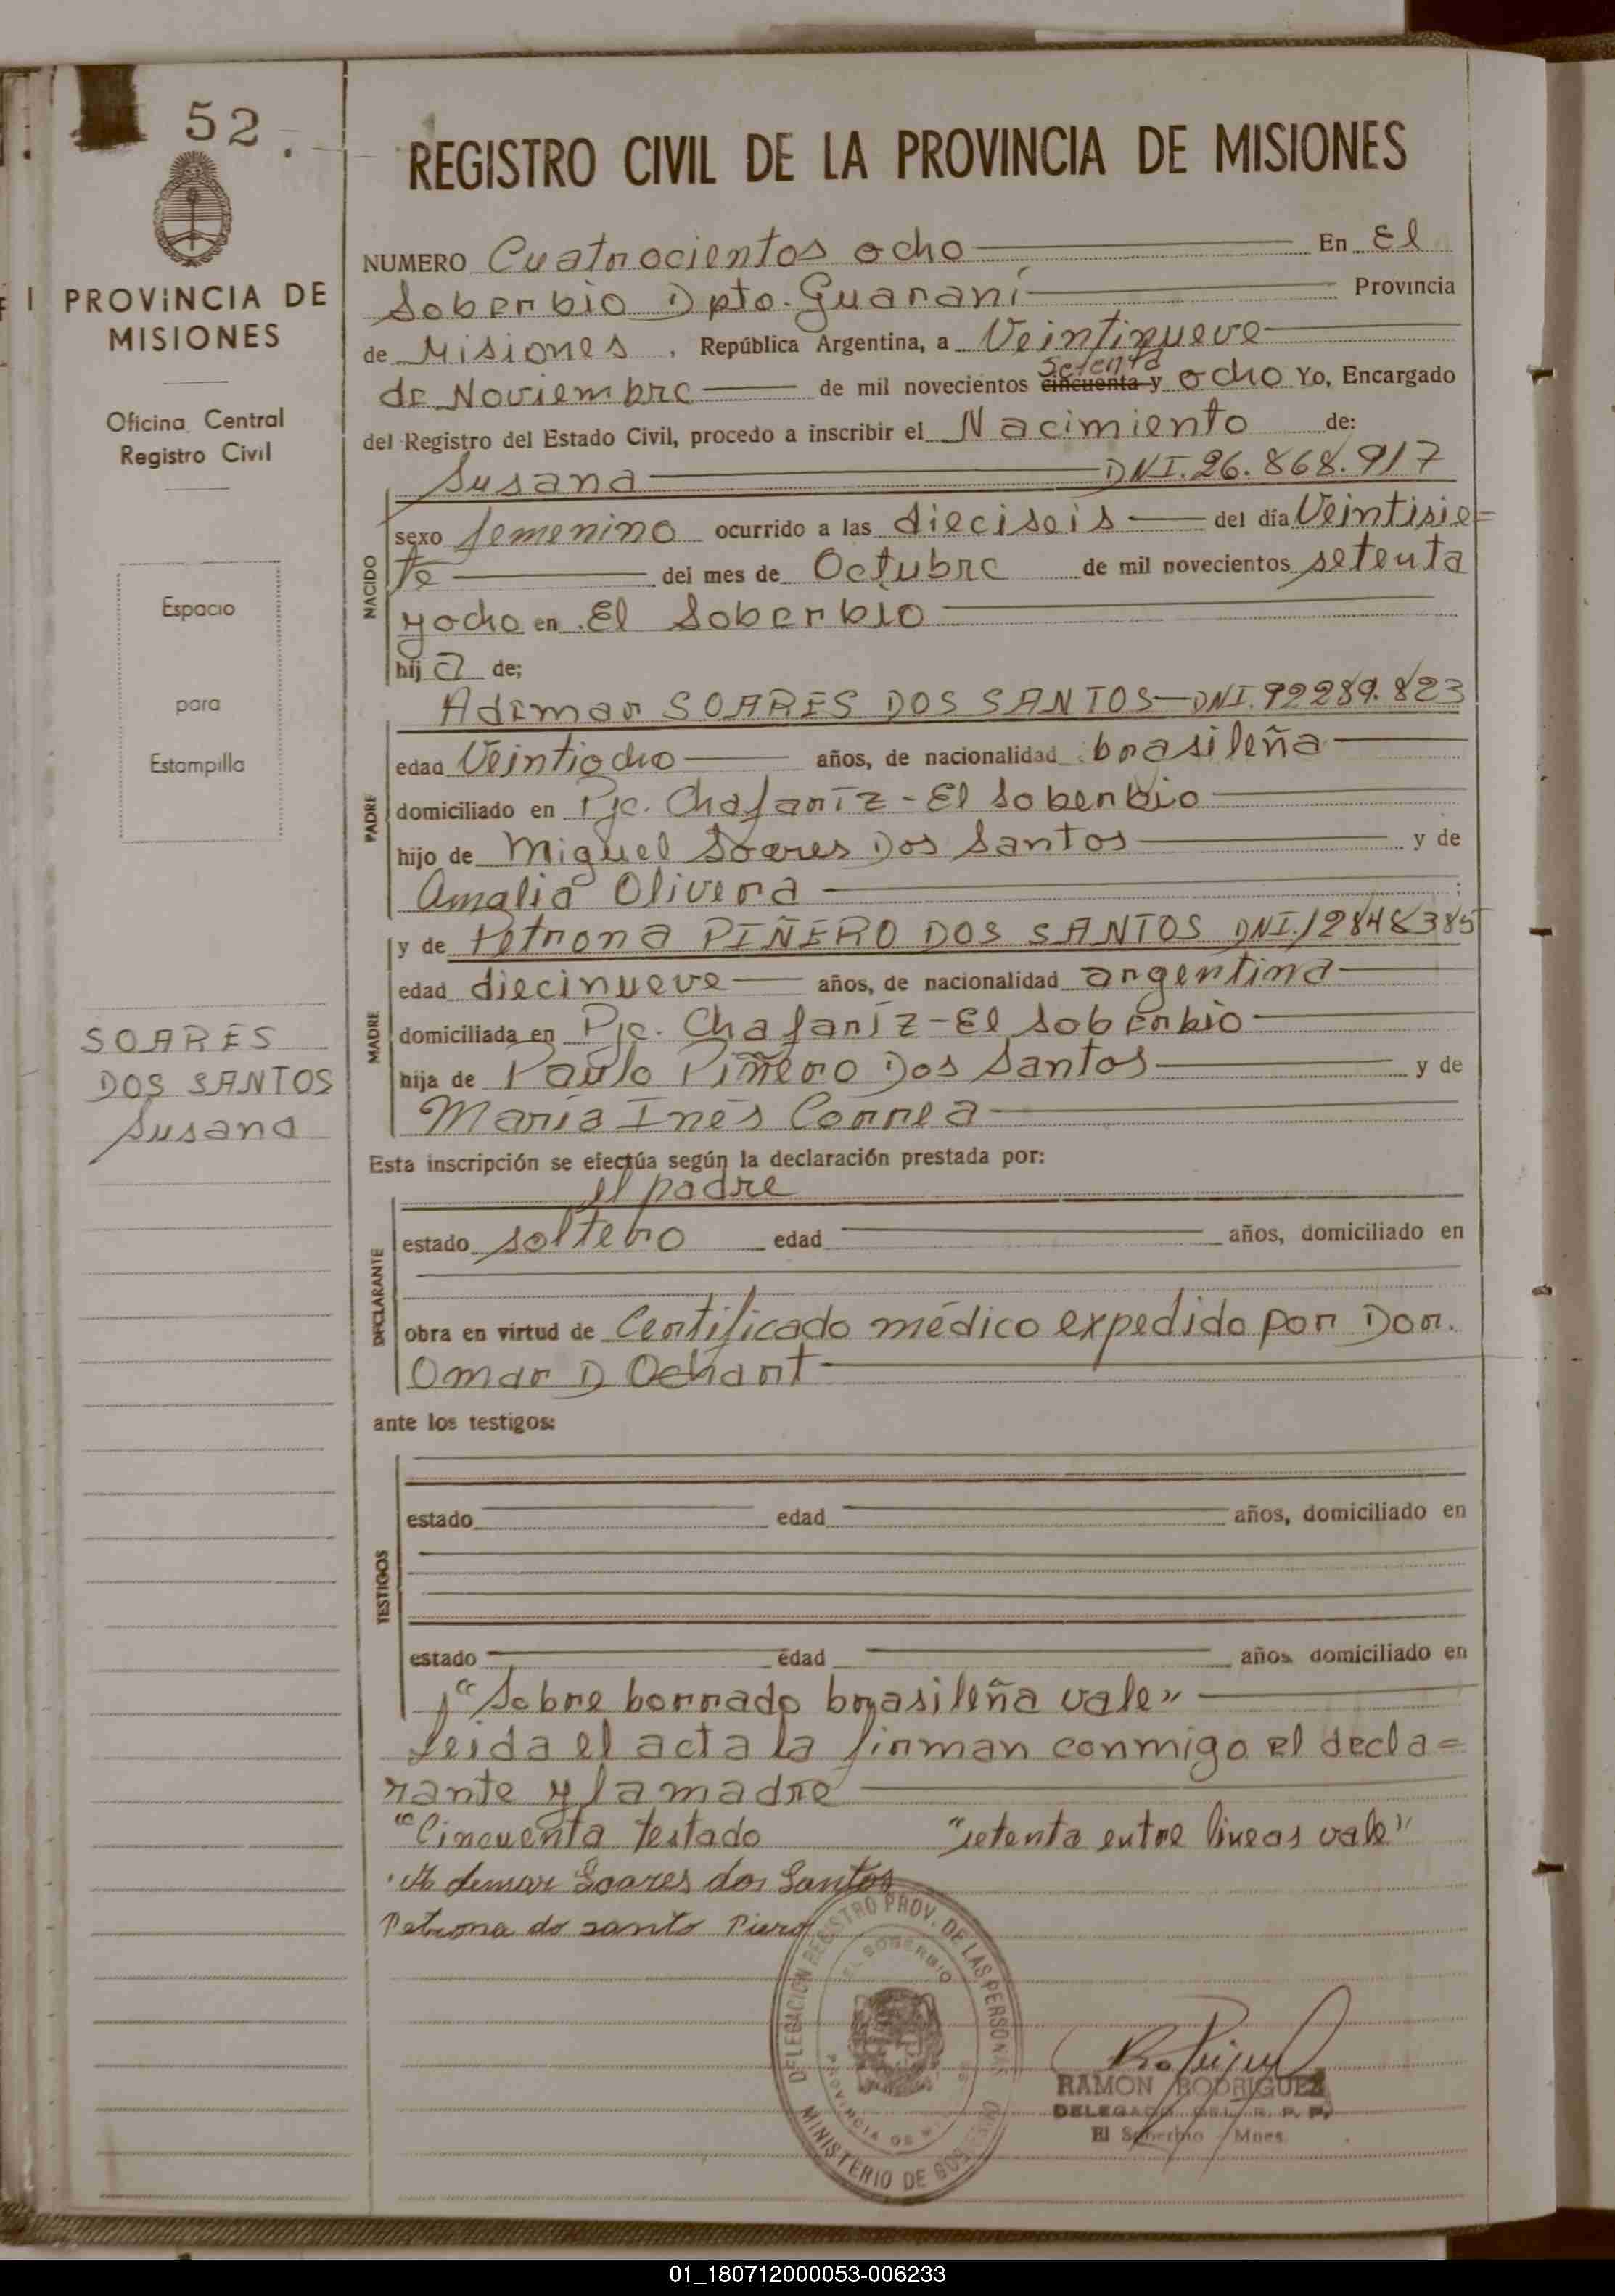 52.
REGISTRO CIVIL DE LA PROVINCIA DE MISIONES
PROVINCIA DE
MISIONES
Oficina Central
Registro Civil
Espacio
para
Estampilla
SOARES
DOS SANTOS
Susana
NUMERO Cuatrocientos ocho En El
Soberbio Dpto. Guaraní Provincia
de Misiones, República Argentina, a Veintinueve
setenta
de Noviembre de mil novecientos cincuenta y ocho Yo, Encargado
del Registro del Estado Civil, procedo a inscribir el Nacimiento de:
Susana DNI. 26.868.917
NACIDO
sexo femenino ocurrido a las dieciseis del día Veintisie=
te del mes de Octubre de mil novecientos setenta
y ocho en El Soberbio
hij a de;
Ademar SOARES DOS SANTOS-DNI. 92289.823
PADRE
edad Veintiocho años, de nacionalidad brasileña
domiciliado en Pje. Chafaríz - El Soberbio
hijo de Miguel Soares Dos Santos y de
Amalia Olivera ;
y de Petrona PIÑERO DOS SANTOS DNI. 12848385
MADRE
edad diecinueve años, de nacionalidad argentina
domiciliada en Pje. Chafaríz - El Soberbio
hija de Paulo Piñero Dos Santos y de
María Inés Correa
Esta inscripción se efectúa según la declaración prestada por:
el padre
DECLARANTE
estado soltero edad años, domiciliado en
obra en virtud de Certificado médico expedido por Dor.
Omar D Ochart
ante los testigos:
TESTIGOS
estado edad años, domiciliado en
estado edad años, domiciliado en
"Sobre borrado brasileña vale"
Leida el acta la firman conmigo el decla=
rante y la madre
"Cincuenta testado "setenta entre lineas vale"
Ademar Soares dos Santos
Petrona do santo Piero
DELEGACION REGISTRO PROV. DE LAS PERSONAS
EL SOBERBIO
PROVINCIA DE
MINISTERIO DE GOBIERNO
RAMON RODRIGUEZ
DELEGADO DEL R. P. P.
El Soberbio - Mnes
01_180712000053-006233